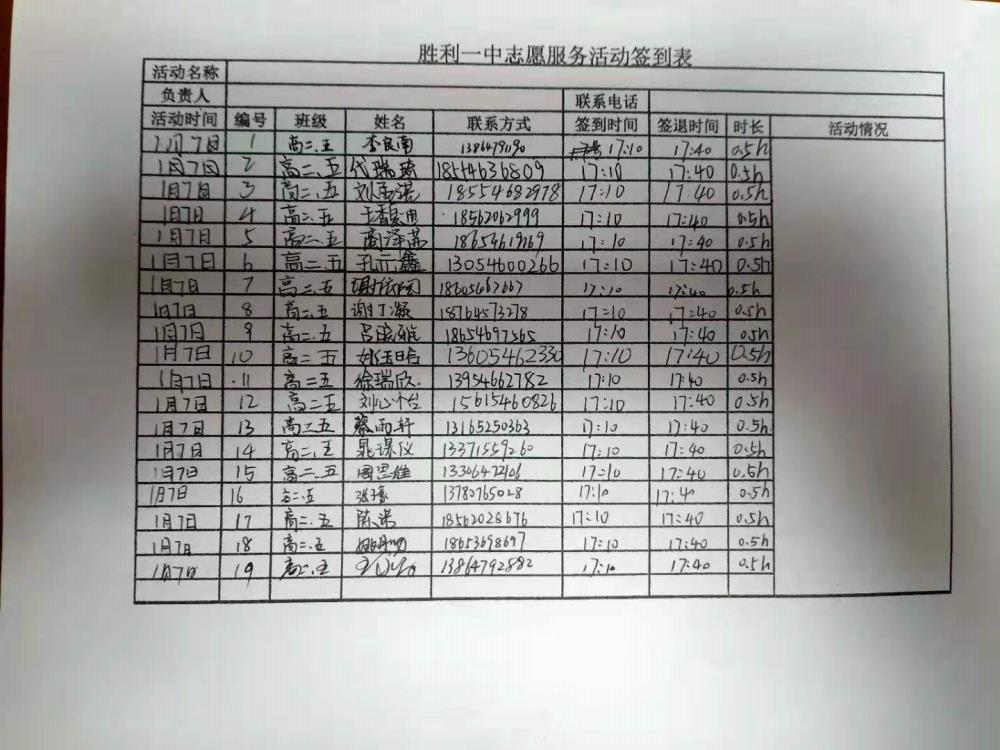 胜利一中志愿服务活动签到表
活动名称
负责人 联系电话
活动时间 编号 班级 姓名 联系方式 签到时间 签退时间 时长 活动情况
1月7日 1 高二.五 李良南 17:10 17:40 0.5h
1月7日 2 高二.五 代瑞琦 18554636809 17:10 17:40 0.5h
1月7日 3 高二.五 18554682978 17:10 17:40 0.5h
1月7日 4 高二.五 18562062999 17:10 17:40 0.5h
1月7日 5 高二.五 商泽茜 18654619169 17:10 17:40 0.5h
1月7日 6 高二.五 孔元鑫 13054600266 17:10 17:40 0.5h
1月7日 7 高二.五 18605467667 17:10 17:40 0.5h
1月7日 8 高二.五 谢丁凝 18764573278 17:10 17:40 0.5h
1月7日 9 高二.五 18654697565 17:10 17:40 0.5h
1月7日 10 高二五 13605462330 17:10 17:40 0.5h
1月7日 11 高二五 徐瑞欣 13954662782 17:10 17:40 0.5h
1月7日 12 高二.五 15615460826 17:10 17:40 0.5h
1月7日 13 高二五 蔡雨轩 13165250363 17:10 17:40 0.5h
1月7日 14 高二.五 13371559260 17:10 17:40 0.5h
1月7日 15 高二.五 周思维 13306472106 17:10 17:40 0.5h
1月7日 16 高二.五 13780765028 17:10 17:40 0.5h
1月7日 17 高二.五 陈诺 18562028676 17:10 17:40 0.5h
1月7日 18 高二.五 18653698697 17:10 17:40 0.5h
1月7日 19 高二.五 13864792882 17:10 17:40 0.5h